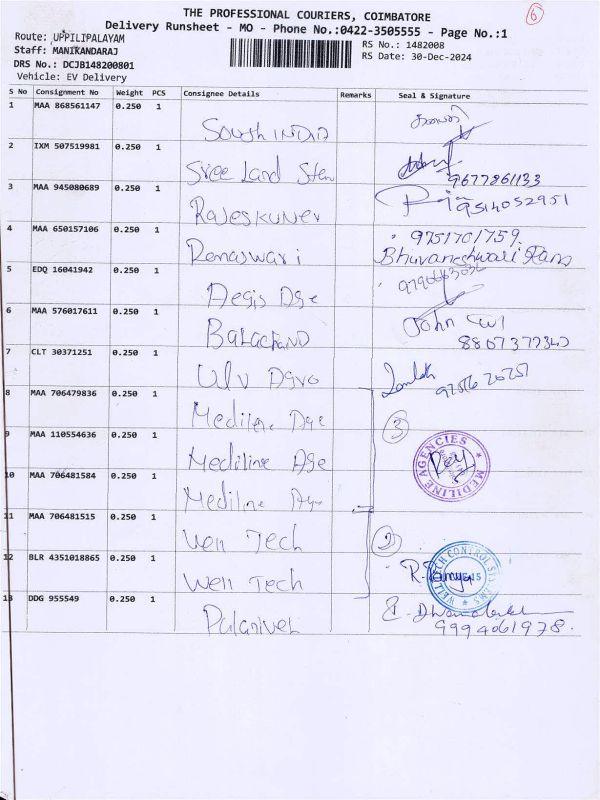 6
THE PROFESSIONAL COURIERS, COIMBATORE
Delivery Runsheet - MO - Phone No.:0422-3505555 - Page No.:1
Route: UPPILIPALAYAM
RS No.: 1482008
Staff: MANIKANDARAJ
RS Date: 30-Dec-2024
DRS No.: DCJB148200801
Vehicle: EV Delivery
S No Consignment No Weight PCS Consignee Details Remarks Seal & Signature
1 MAA 868561147 0.250 1
South INDIA
2 IXM 507519981 0.250 1
Sree Land
9677861133
3 MAA 945080689 0.250 1
Rajeskumer
9514052951
4 MAA 650157106 0.250 1
9751701759
Ramaswari Bhuvaneshwari
5 EDQ 16041942 0.250 1
Aegis Dge
6 MAA 576017611 0.250 1
BALACHAND
John
8807377340
7 CLT 30371251 0.250 1
8 MAA 706479836 0.250 1
Mediline Dge
3
9 MAA 110554636 0.250 1
Mediline Age
MEDILINE AGENCIES
10 MAA 706481584 0.250 1
Mediline
11 MAA 706481515 0.250 1
Well Tech
2
12 BLR 4351018865 0.250 1
Well Tech
WELLTECH CONTROL SYSTEMS
13 DDG 955549 0.250 1
Palanivel
9994061978